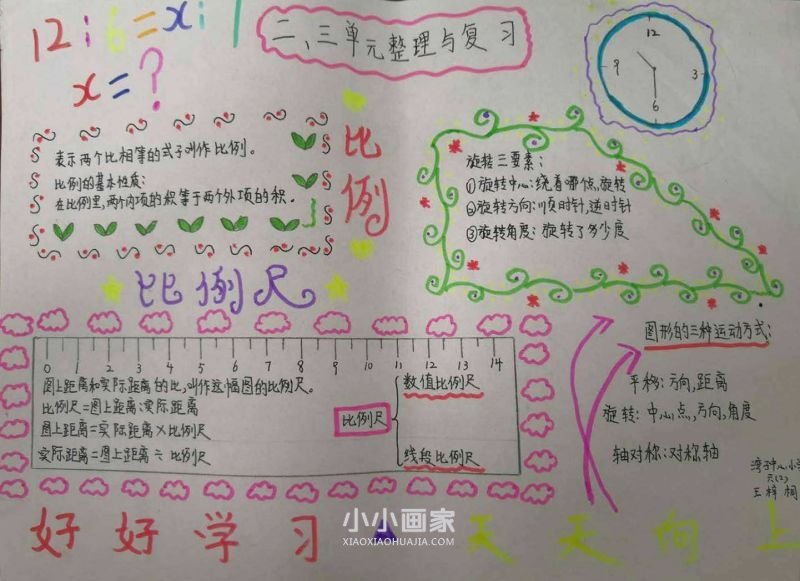 12:6=x:1
x=?
二、三单元整理与复习
12
9
3
6
表示两个比相等的式子叫作比例。
比例的基本性质:
在比例里,两个内项的积等于两个外项的积。
比例
旋转三要素:
①旋转中心:绕着哪个点旋转
②旋转方向:顺时针,逆时针
③旋转角度:旋转了多少度
比例尺
0 1 2 3 4 5 6 7 8 9 10 11 12 13 14
图上距离和实际距离的比,叫作这幅图的比例尺。
比例尺=图上距离:实际距离
图上距离=实际距离×比例尺
实际距离=图上距离÷比例尺
比例尺
数值比例尺
线段比例尺
图形的三种运动方式:
平移:方向,距离
旋转:中心点,方向,角度
轴对称:对称轴
王梓桐
好好学习 天天向上
小小画家
XIAOXIAOHUAJIA.COM